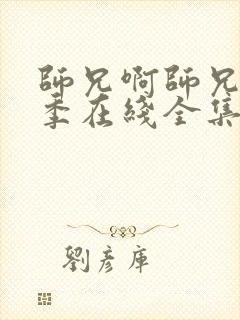 師兄啊師兄
季在綫全集
劉彥庫